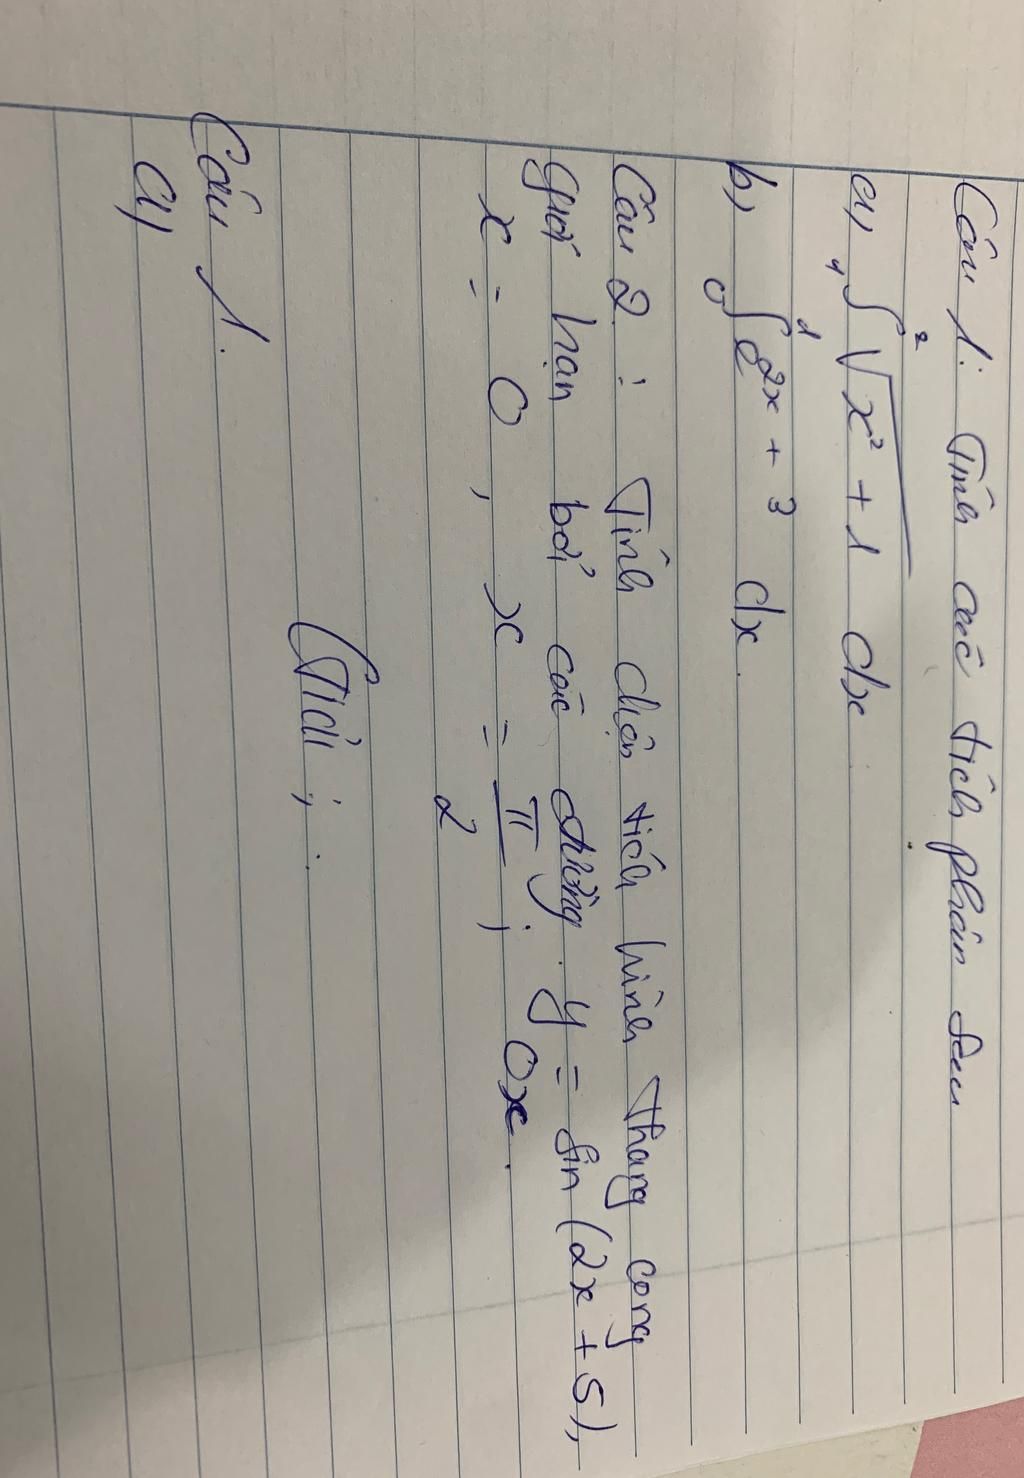 Câu 1: Tính các tích phân sau
a, ₁∫² √(x² + 1) dx
b, ₀∫¹ e^(2x + 3) dx.
Câu 2 : Tính diện tích hình thang cong
giới hạn bởi các đường y = sin (2x + 5),
x = 0, x = π/2 ; Ox.
Giải :
Câu 1.
a,